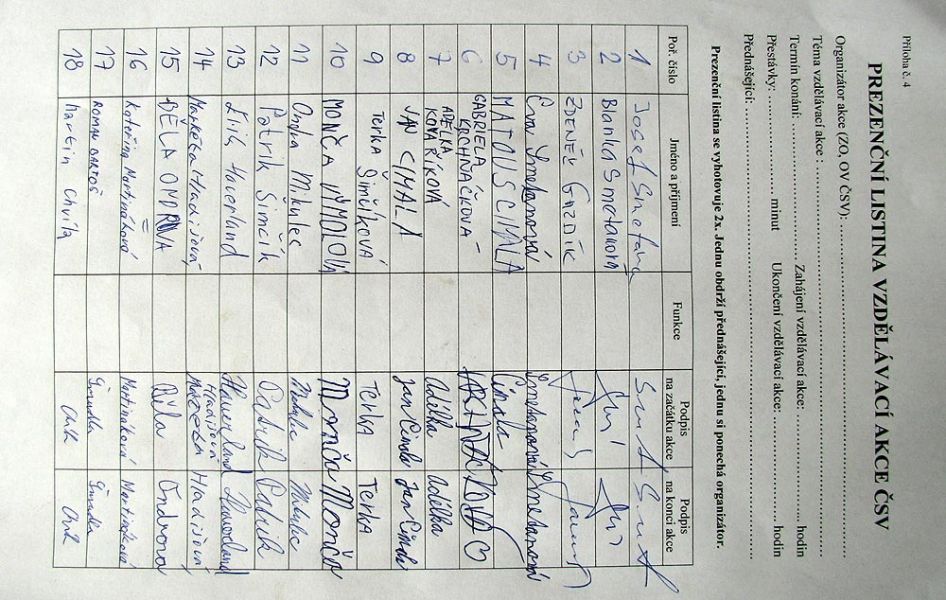 Příloha č. 4
PREZENČNÍ LISTINA VZDĚLÁVACÍ AKCE ČSV
Organizátor akce (ZO, OV ČSV): ..........
Téma vzdělávací akce : ..........
Termín konání: .......... Zahájení vzdělávací akce: .......... hodin
Přestávky: .......... minut Ukončení vzdělávací akce: .......... hodin
Přednášející: ..........
Prezenční listina se vyhotovuje 2x. Jednu obdrží přednášející, jednu si ponechá organizátor.
Poř. číslo Jméno a příjmení Funkce Podpis na začátku akce Podpis na konci akce
1 Josef Smetana
2 Blanka Smetanova
3 ZDENĚK GAZDÍK
4 Eva Smetanová Smetanová Smetanová
5 MATOUŠ CIMALA Cimala
6 GABRIELA KRCHŇAČKOVÁ
7 ADÉLKA KOVAŘÍKOVÁ Adélka Adélka
8 JAN CIMALA Jan Cimala Jan Cimala
9 Terka Šimčíková TERKA TERKA
10 MONČA Monča Monča
11 Ondra Mikulec Mikulec Mikulec
12 Patrik Šimčík Patrik Patrik
13 Haverland Haverland Haverland
14 Markéta Hladišová Hladišová Hladišová
15 Ondrova
16 Kateřina Martináková Martináková Martináková
17 ROMAN BARTOŠ
18 Martin Chvíla